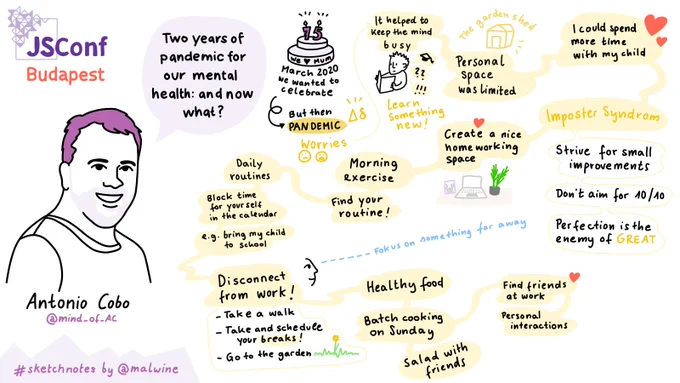 JSConf
Budapest
Two years of
pandemic for
our mental
health: and now
what?
Antonio Cobo
@mind_of_AC
#sketchnotes by @malwine
15
We ♥ Mum
March 2020
we wanted to
celebrate
But then
PANDEMIC
Worries
It helped to
keep the mind
busy
??
!!!
Learn
something
new!
The garden shed
Personal
space
was limited
I could spend
more time
with my child
Imposter Syndrom
Strive for small
improvements
Don't aim for 10/10
Perfection is the
enemy of GREAT
Create a nice
home working
space
Morning
exercise
Find your
routine!
Daily
routines
Block time
for yourself
in the calendar
e.g. bring my child
to school
Fokus on something far away
Disconnect
from work!
- Take a walk
- Take and schedule
your breaks!
- Go to the garden
Healthy food
Batch cooking
on Sunday
Salad with
friends
Find friends
at work
Personal
interactions